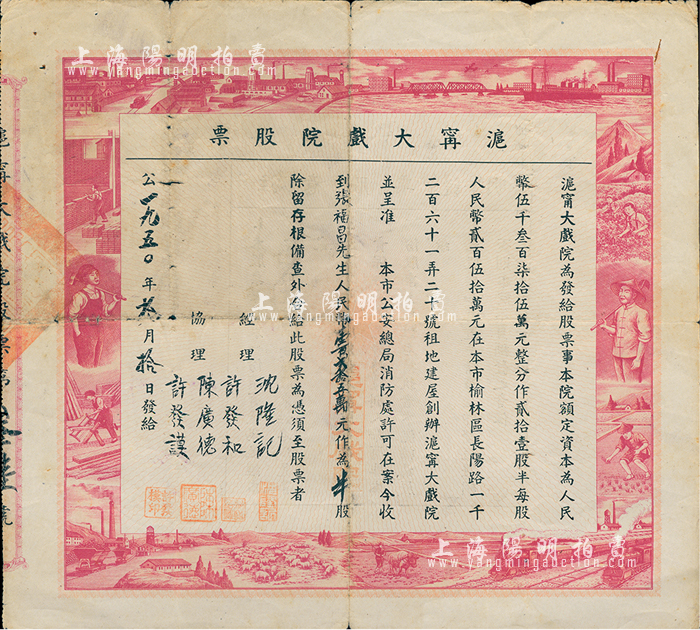 上海陽明拍賣
www.yangmingauction.com
滬甯大戲院股票
滬甯大戲院為發給股票事本院額定資本為人民
幣伍千叁百柒拾伍萬元整分作貳拾壹股半每股
人民幣貳百伍拾萬元在本市榆林區長陽路一千
二百六十一弄二十號租地建屋創辦滬甯大戲院
並呈准 本市公安總局消防處許可在案今收
到張福昌先生人民幣壹百貳拾五萬元作為半股
除留存根備查外合給此股票為憑須至股票者
經理 沈陞記
許發和
協理 陳廣德
許發謨
公一九五〇年 月拾日發給
滬甯大戲院股票第 號
上海陽明拍賣
www.yangmingauction.com
上海陽明拍賣
www.yangmingauction.com